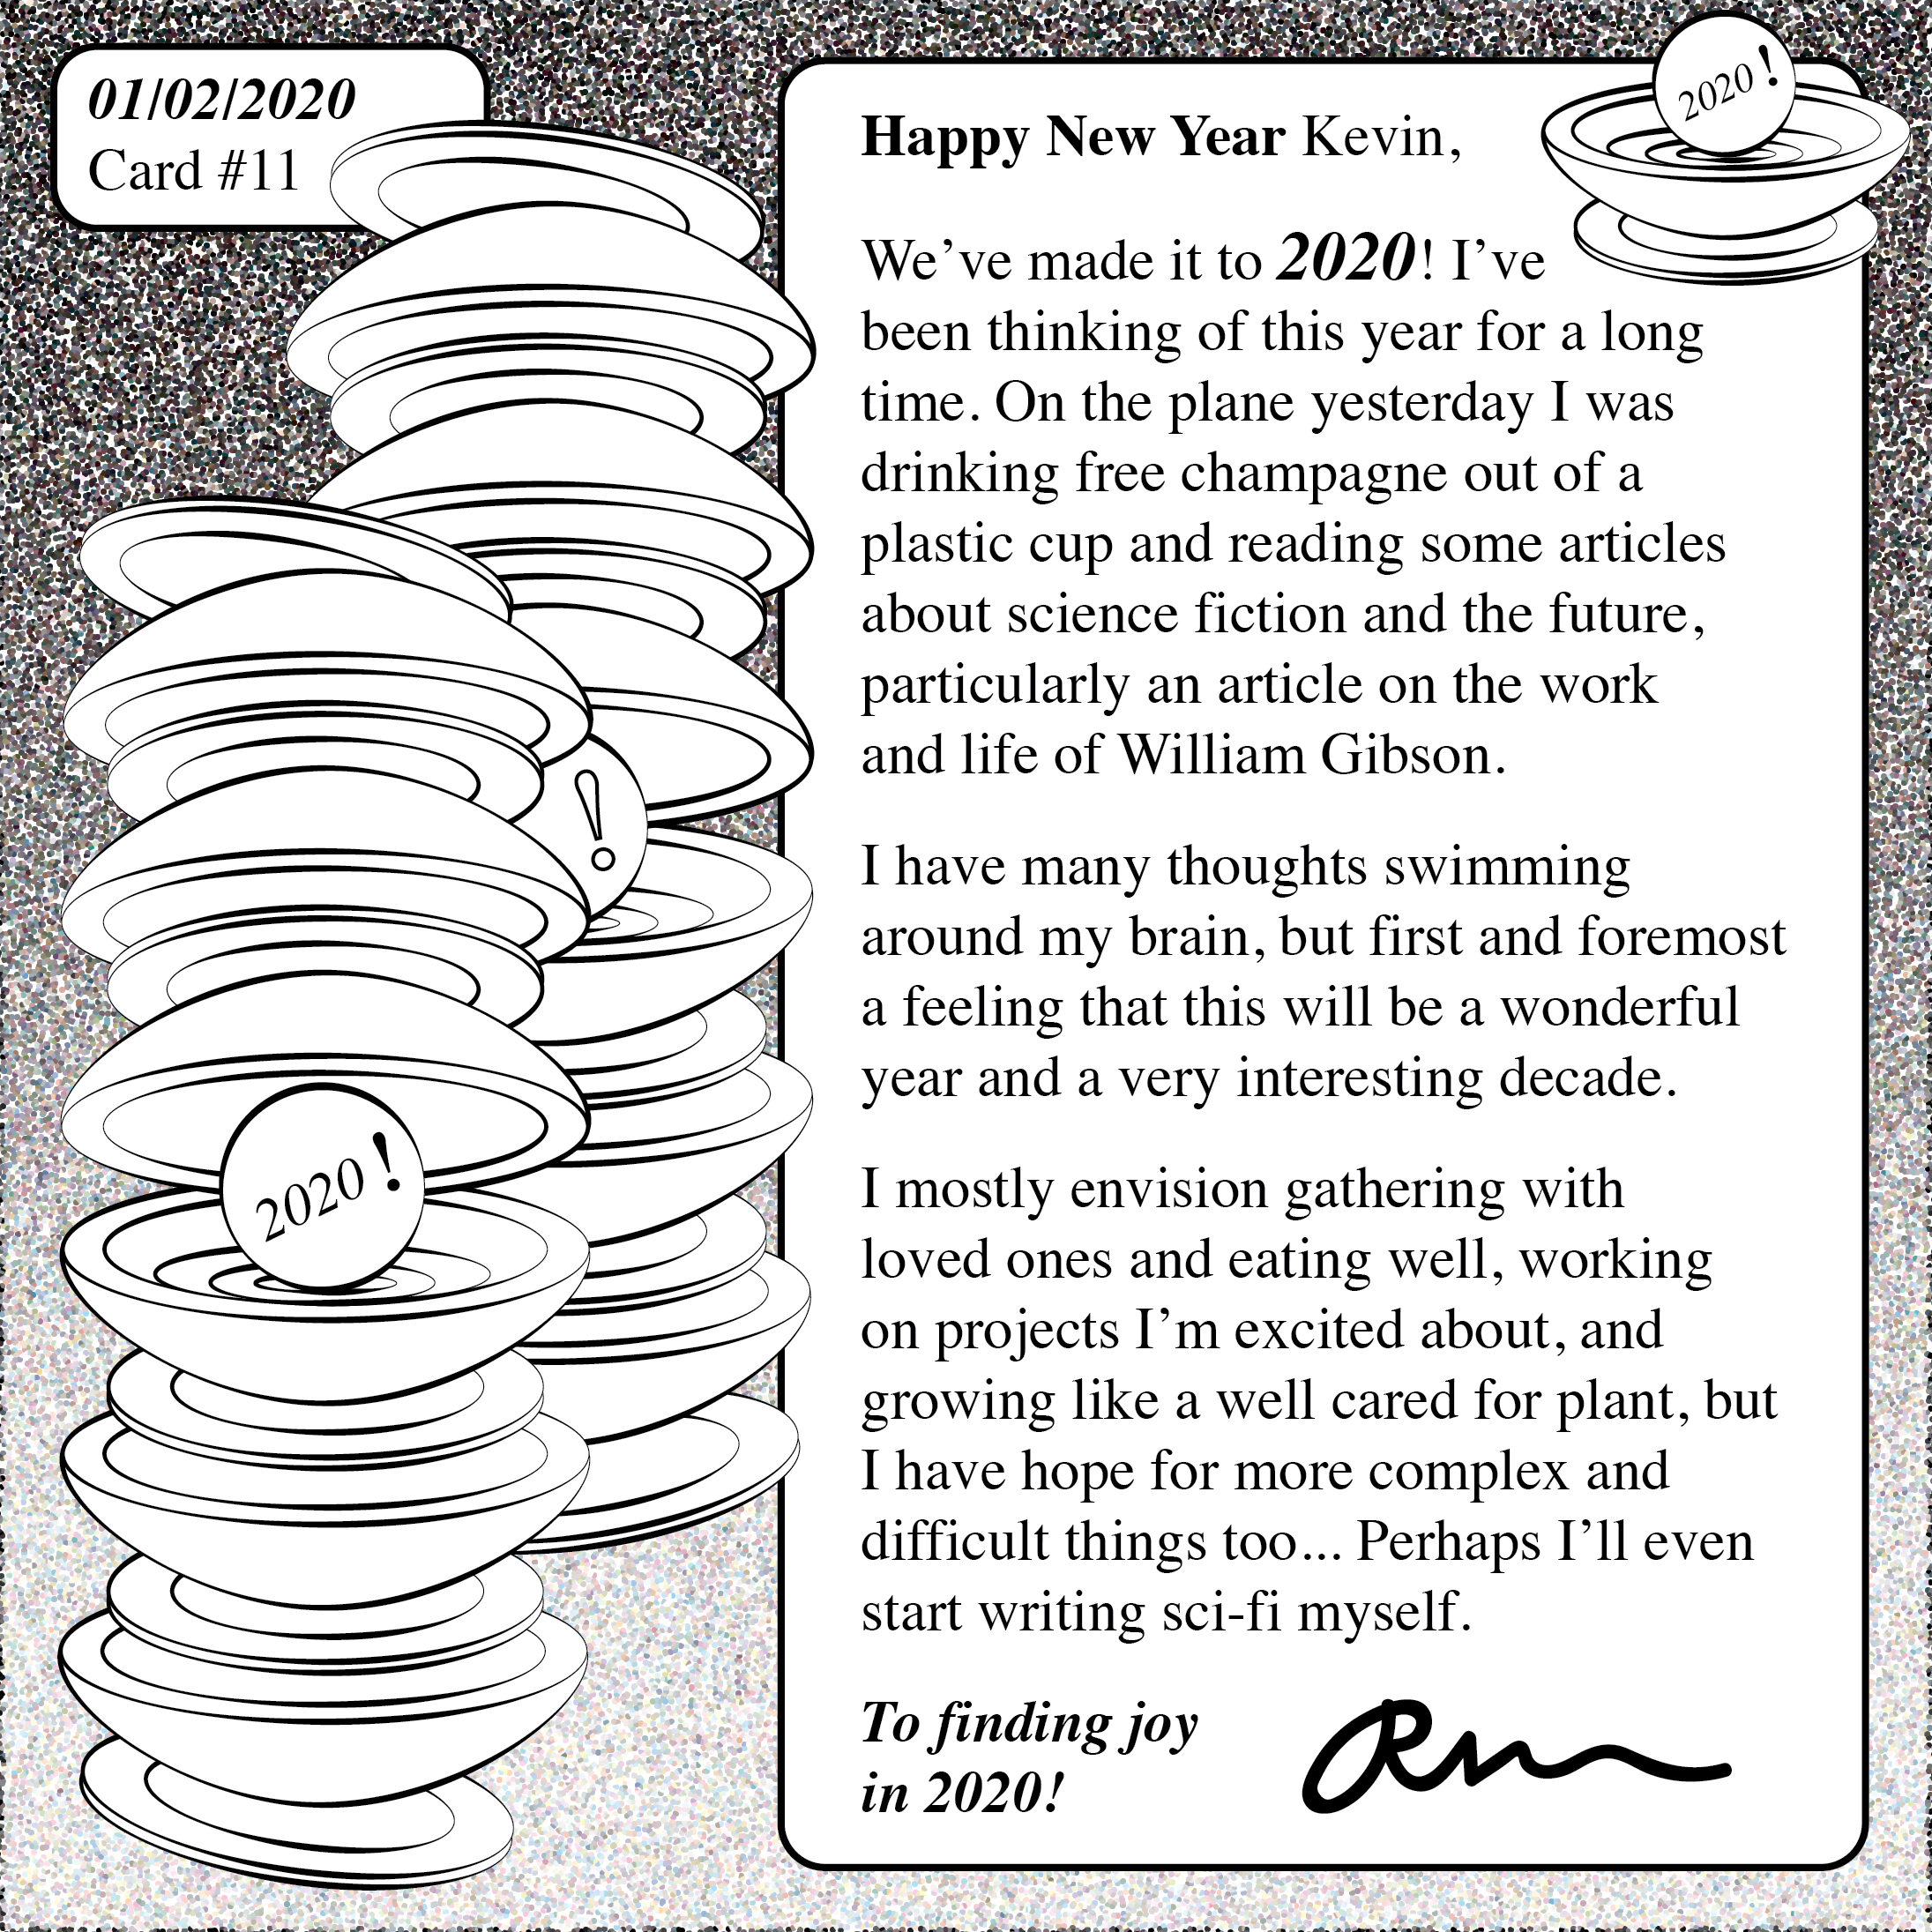 01/02/2020
Card #11
2020!
Happy New Year Kevin,
We’ve made it to 2020! I’ve
been thinking of this year for a long
time. On the plane yesterday I was
drinking free champagne out of a
plastic cup and reading some articles
about science fiction and the future,
particularly an article on the work
and life of William Gibson.
I have many thoughts swimming
around my brain, but first and foremost
a feeling that this will be a wonderful
year and a very interesting decade.
I mostly envision gathering with
loved ones and eating well, working
on projects I’m excited about, and
growing like a well cared for plant, but
I have hope for more complex and
difficult things too... Perhaps I’ll even
start writing sci-fi myself.
To finding joy
in 2020!
!
2020!